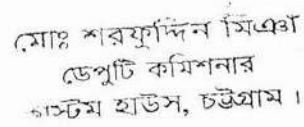 মোঃ শরফুদ্দিন মিঞা
ডেপুটি কমিশনার
কাস্টম হাউস, চট্টগ্রাম ।